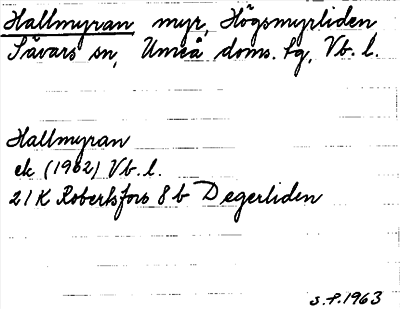 Hallmyran myr, Högsmyrliden
Sävars sn, Umeå doms. tg, Vb. l.
Hallmyran
ek (1962) Vb. l.
21 K Robertsfors 8 b Degerliden
S.F. 1963